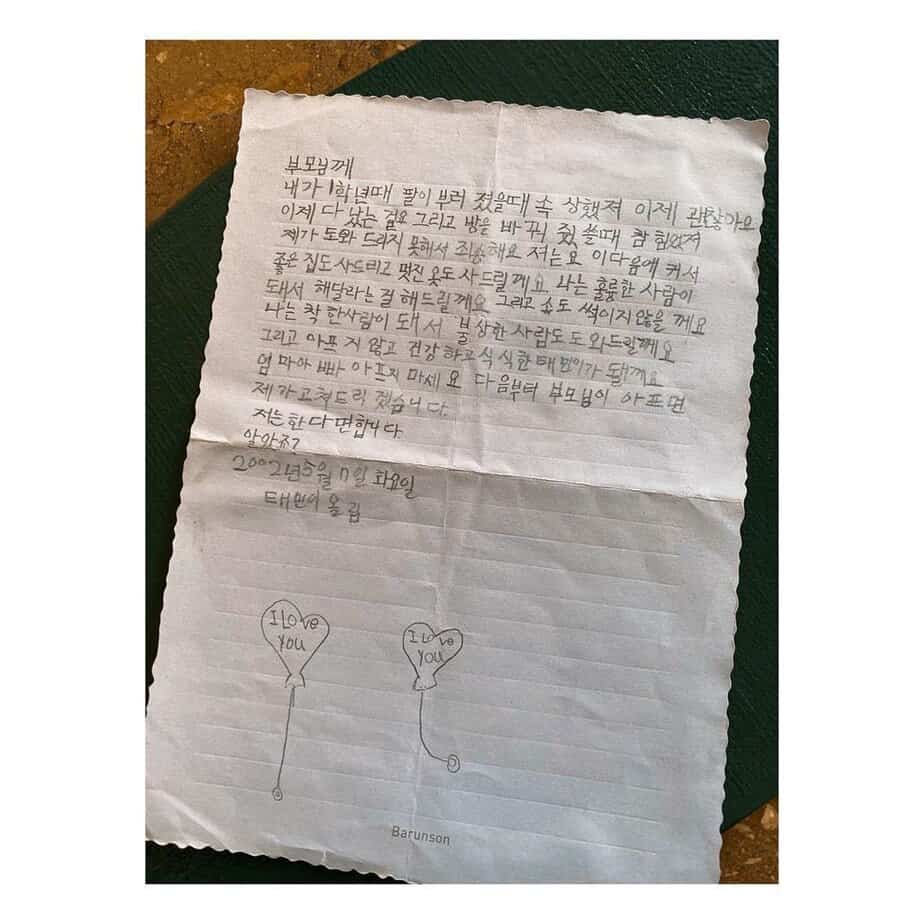 부모님께
내가 1학년때 팔이 부러 졌을때 속 상했져 이제 괜찮아요
이제 다 났는 걸요 그리고 방을 바 꾸 쓸때 참 힘었져
제가 도와 드리지 못해서 죄송해요 저는요 이다음에 커서
좋은 집도 사드리고 멋진 옷도 사드릴께요 나는 훌륭한 사람이
돼서 해달라는 걸 해드릴께요 그리고 속도 썩이지 않을 께요
나는 착 한사람이 돼 서 불상한 사람도 도 와드릴께요
그리고 아프 지 않고 건강 하고 식 식한 태민이가 될께요
엄 마아 빠 아프지 마세 요 다 음부터 부모님이 아프면
제가고쳐드리 겠습니다.
저는한 다 면합니다.
알았죠?
2002년5월 7일 화요일
태민이 올림
I Love You
I Love You
Barunson